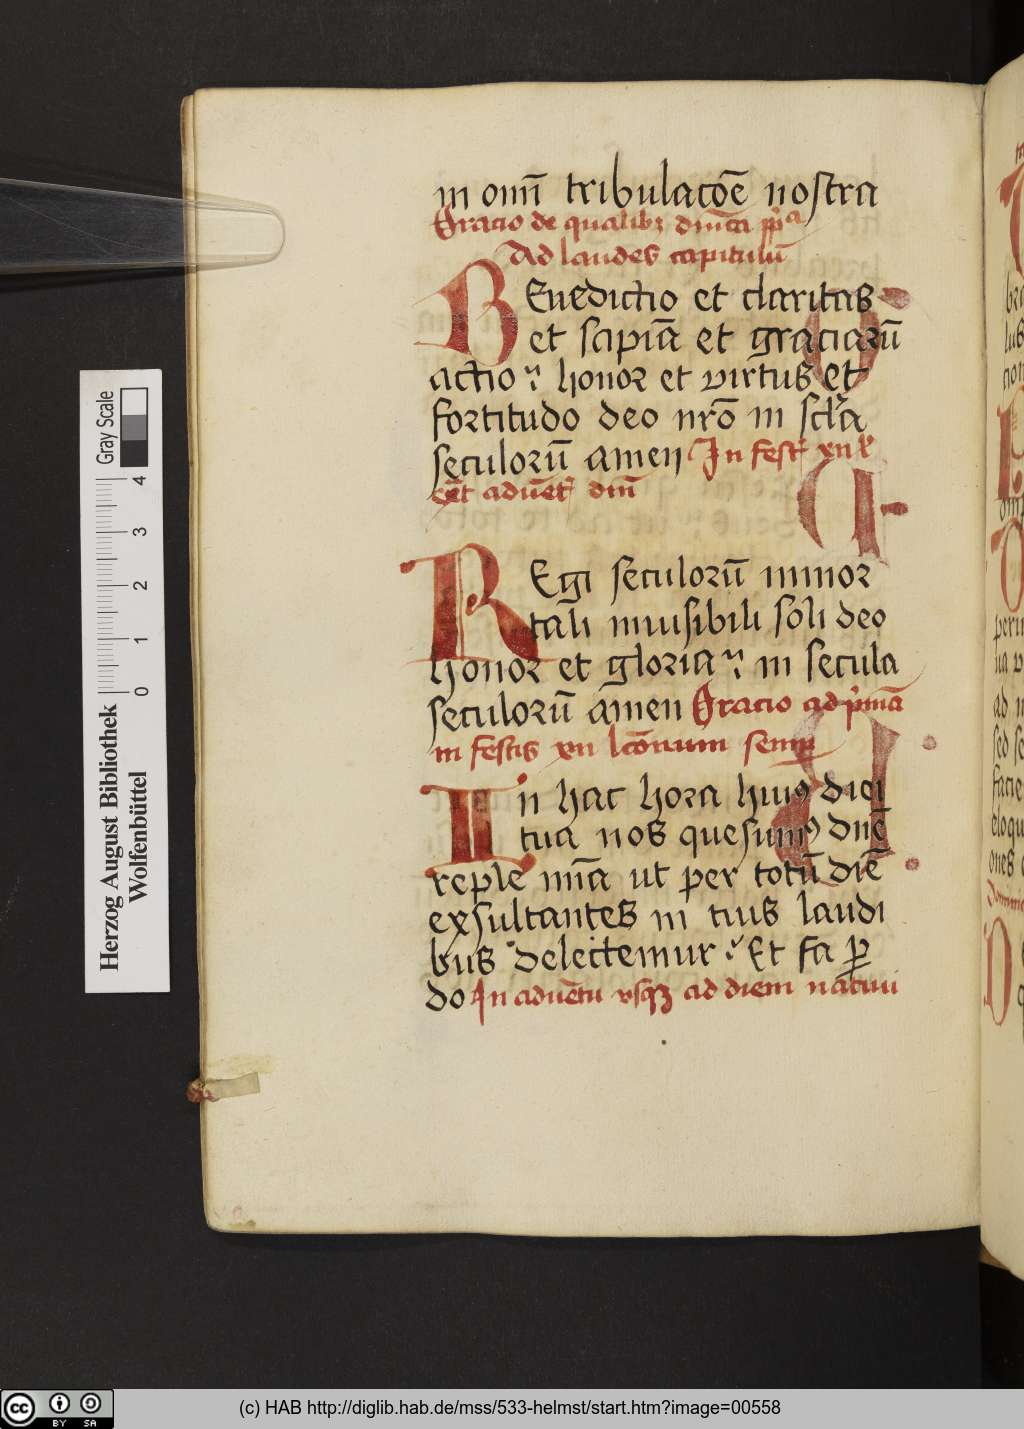 in om̅i tribulacōē nostra
Oracio de qualibꝫ dn̅ica p̲ᵃ
Ad laudes capitulū
BEnedictio et claritas
et sapiēa et graciarū
actio honor et virtus et
fortitudo deo nrō in sc̅la
seculorū amen In fest xii
cēt aduēt dn̅i
REgi seculorū inmor
tali inuisibili soli deo
honor et gloria in secula
seculorū amen Oracio ad p̲imā
in festis xii lc̅onum semp̲
In hac hora huiꝰ diei
tua nos quesumꝰ dn̅e
reple mi̅a ut per totū diē
exsultantes in tuis laudi
bus delectemur Et fa ꝓ
do In aduētu vsqꝫ ad diem natiui
Herzog August Bibliothek
Wolfenbüttel
Gray Scale
0 1 2 3 4
(c) HAB http://diglib.hab.de/mss/533-helmst/start.htm?image=00558
cc BY SA